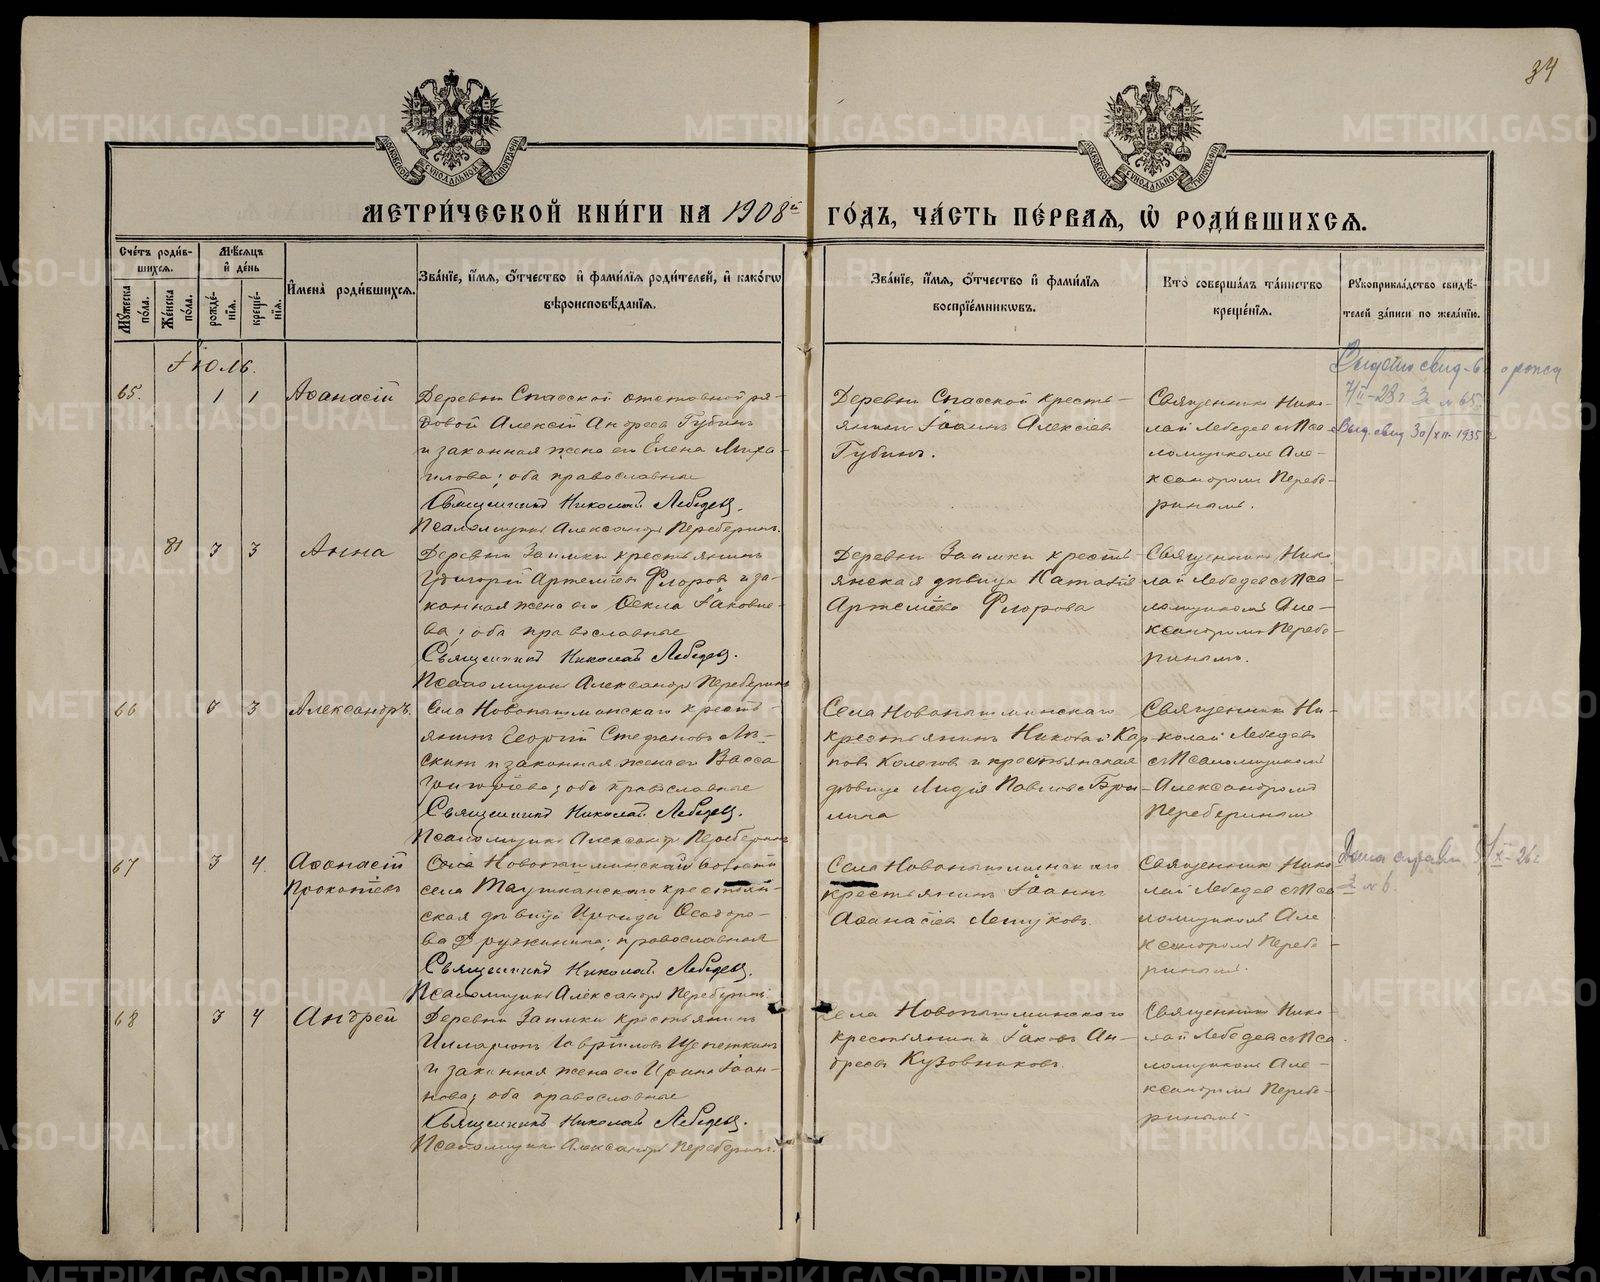 34
МОСКОВСКОЙ СѴНОДАЛЬНОЙ ТИПОГРАФІИ
МОСКОВСКОЙ СѴНОДАЛЬНОЙ ТИПОГРАФІИ
МЕТРИ́ЧЕСКОЙ КНИ́ГИ НА 1908й ГО́ДЪ, ЧА́СТЬ ПЕ́РВАѦ, Ѡ҆ РОДИ́ВШИХСѦ.
Сче́тъ роди́в-
шихсѧ.
Мѣ́сѧцъ
и҆ де́нь
Мꙋ́жеска
по́ла.
Же́нска
по́ла.
рожде́-
нїѧ.
креще́-
нїѧ.
И҆мена̀ роди́вшихсѧ.
Зва́нїе, и҆́мѧ, ѻ҆́тчество и҆ фами́лїѧ роди́телей, и҆ како́гѡ
вѣроисповѣ́данїѧ.
Зва́нїе, и҆́мѧ, ѻ҆́тчество и҆ фами́лїѧ
воспрїе́мникѡвъ.
Кто̀ соверша́лъ та́инство
креще́нїѧ.
Рꙋкоприкла́дство свидѣ́-
телей за́писи по жела́нїю.
Іюль.
65.
1
1
Аѳанасій
Деревни Спасской отставной ря-
довой Алексій Андреевъ Губинъ
и законная жена его Елена Миха-
илова; оба православные
Священникъ Николай Лебедевъ.
Псаломщикъ Александръ Переберинъ.
Деревни Спасской кресть-
янинъ Іоаннъ Алексіевъ
Губинъ.
Священникъ Нико-
лай Лебедевъ съ Пса-
ломщикомъ Але-
ксандромъ Перебе-
ринымъ.
7/II-28 г № 65.
Выд. свид 30/XII 1935 г
81
3
3
Анна
Деревни Заимки крестьянинъ
Григорій Артеміевъ Флоровъ и за-
конная жена его Ѳекла Іаковле-
ва; оба православные
Священникъ Николай Лебедевъ.
Псаломщикъ Александръ Переберинъ
Деревни Заимки кресть-
янская дѣвица Наталія
Артеміева Флорова
Священникъ Нико-
лай Лебедевъ съ Пса-
ломщикомъ Але-
ксандромъ Перебе-
ринымъ.
66
3
Александръ.
Села Новопышминскаго кресть-
янинъ Георгій Стефановъ
и законная жена его Васса
Григоріева; оба православные
Священникъ Николай Лебедевъ.
Псаломщикъ Александръ Переберинъ
Села Новопышминскаго
крестьянинъ Николай Кар-
повъ и крестьянская
дѣвица Лидія Павлова
Священникъ Ни-
колай Лебедевъ
съ Псаломщикомъ
Александромъ
Переберинымъ
67
3
4.
Аѳанасій
Прокопіевъ
Села Новопышминскаго волости
села Таушканскаго крестьян-
ская дѣвица Ираида Ѳеодоро-
ва Дружинина; православная
Священникъ Николай Лебедевъ.
Псаломщикъ Александръ Переберинъ.
Села Новопышминскаго
крестьянинъ Іоаннъ
Аѳанасіевъ Летуковъ.
Священникъ Нико-
лай Лебедевъ съ Пса-
ломщикомъ Але-
ксандромъ Перебе-
ринымъ.
Дана справка X-26 г
№ 6.
68
3
4
Андрей
Деревни Заимки крестьянинъ
Илларіонъ Гавріиловъ Щепеткинъ
и законная жена его Ирина Іоан-
нова; оба православные
Священникъ Николай Лебедевъ.
Псаломщикъ Александръ Переберинъ.
Села Новопышминскаго
крестьянинъ Іаковъ Ан-
дреевъ Кузовниковъ.
Священникъ Нико-
лай Лебедевъ съ Пса-
ломщикомъ Але-
ксандромъ Перебе-
ринымъ.
METRIKI.GASO-URAL.RU